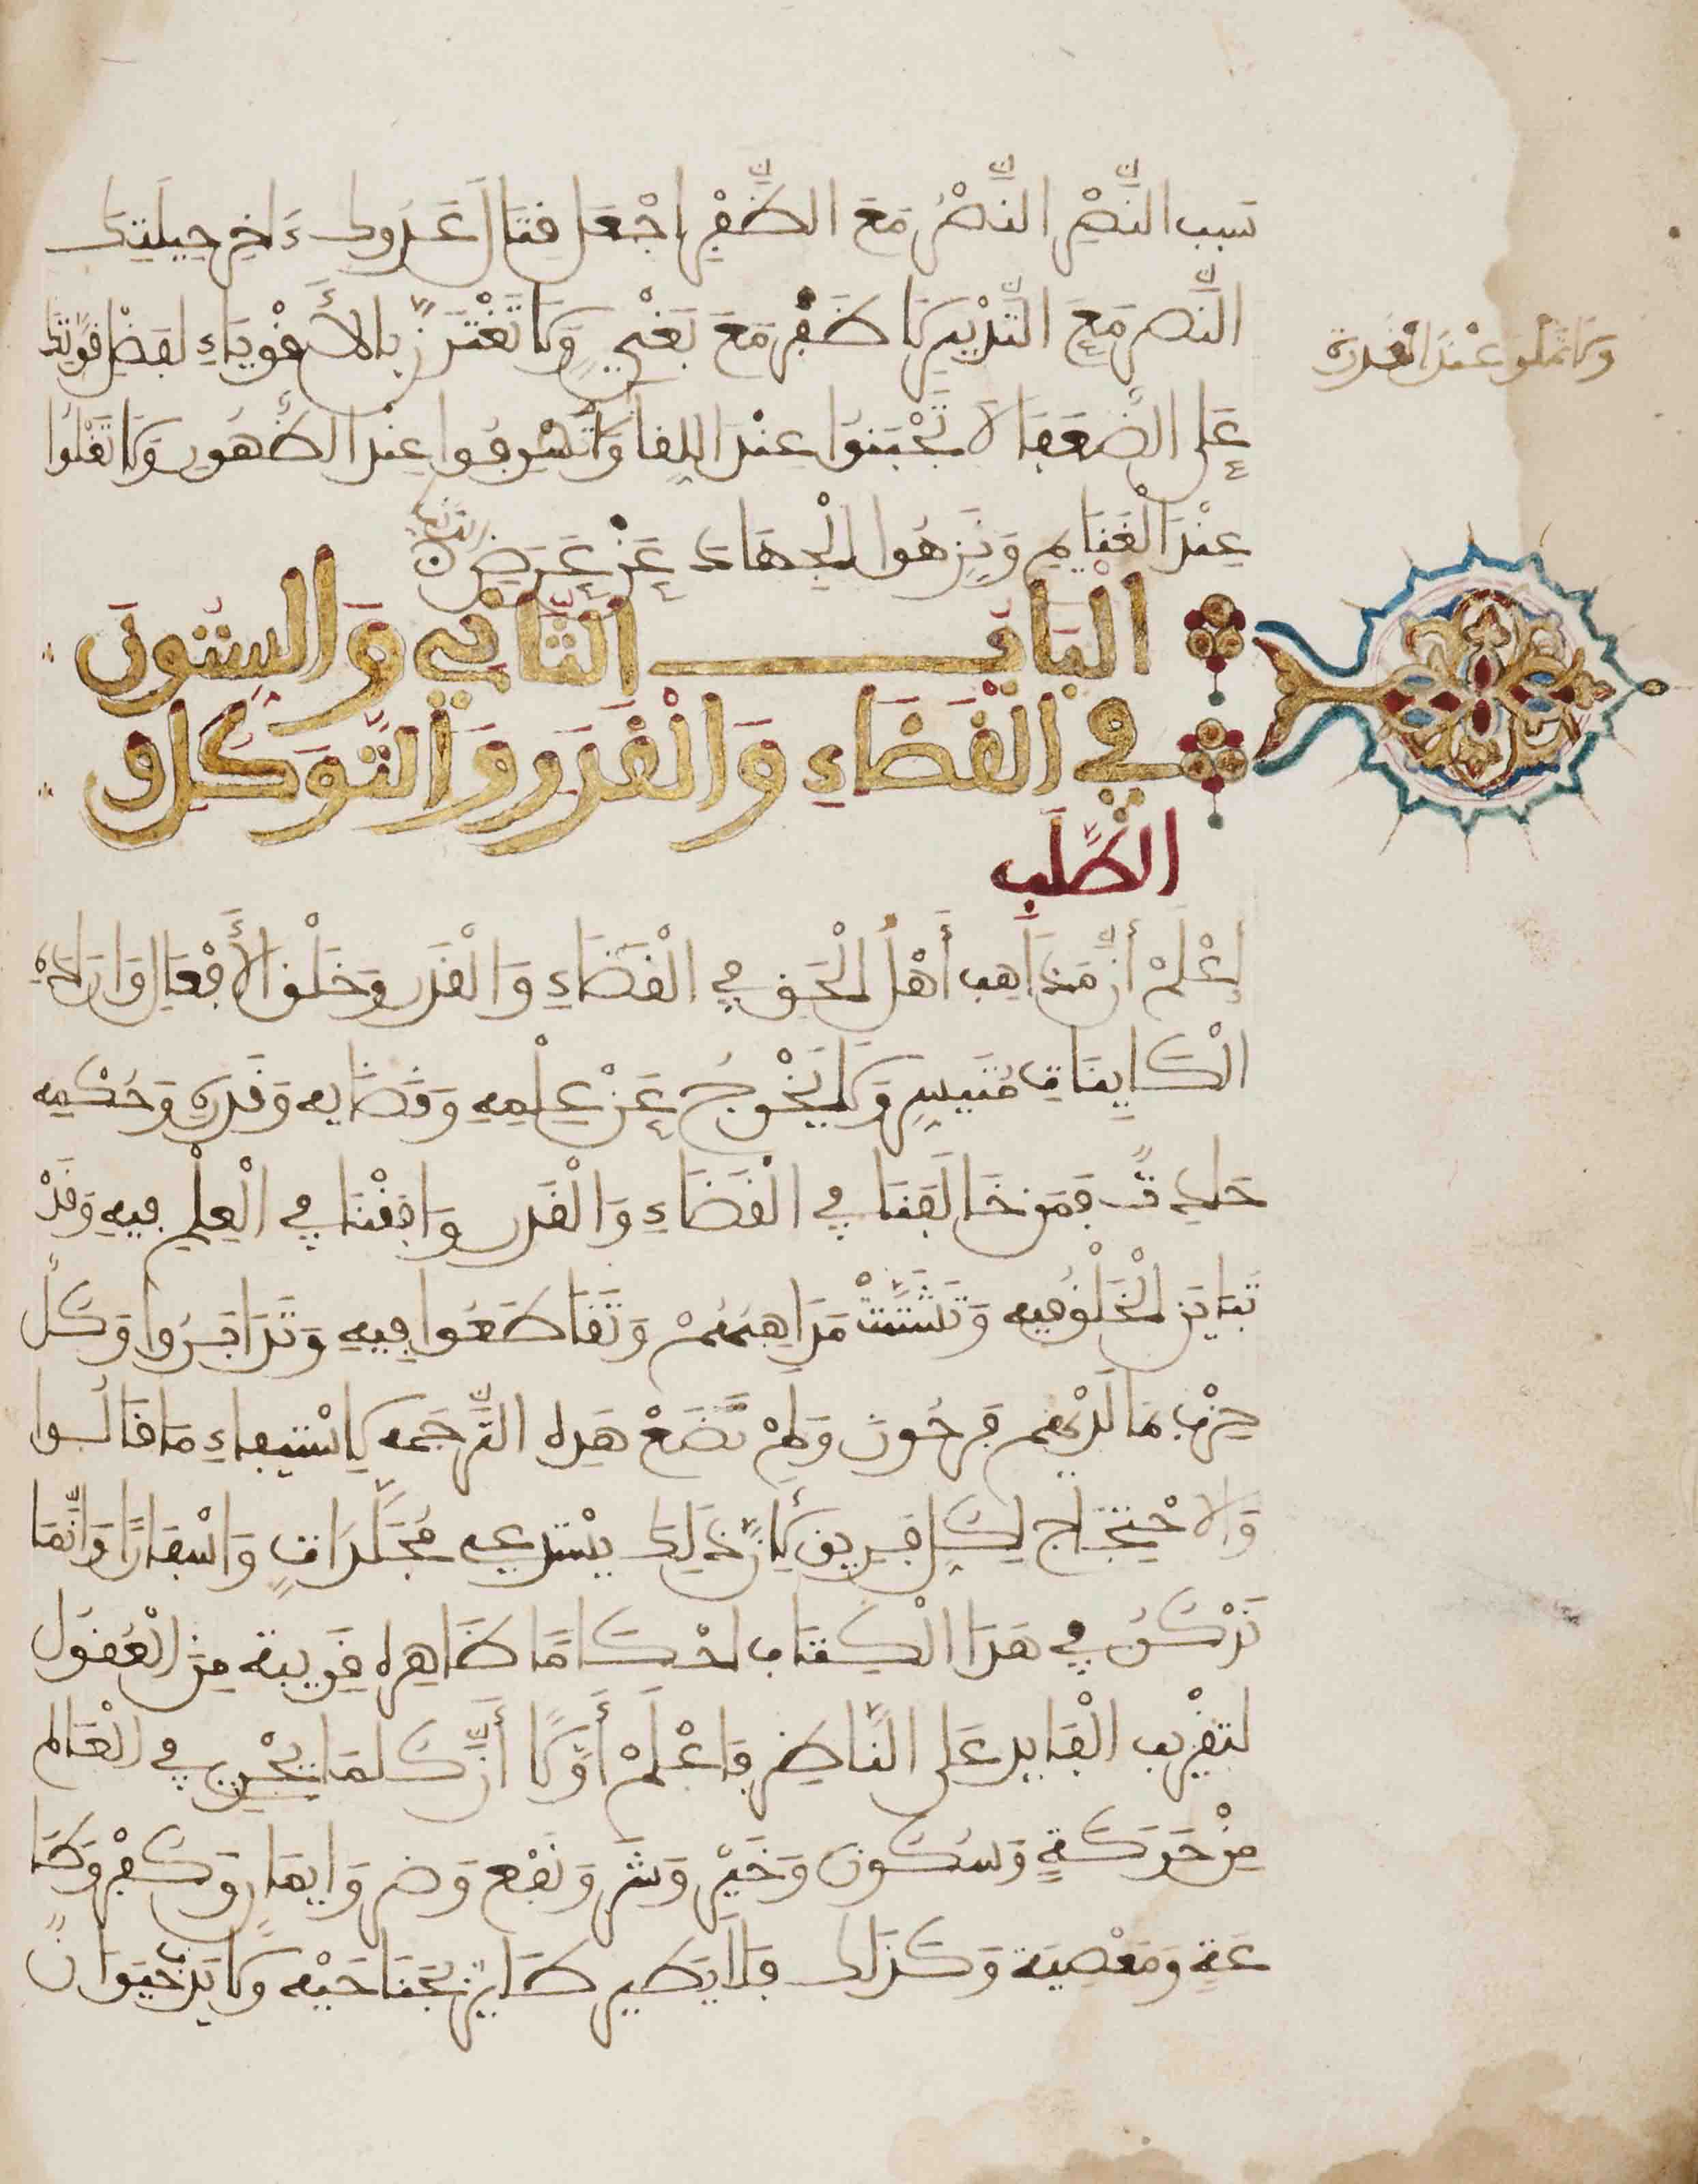 سبب النَّصْرِ النَّصْرُ مَعَ الصَّبْرِ اجْعَل قِتَالَ عَدُوِّكَ ءَاخِرَ حِيلَتِكَ
النَّصر مَعَ التَّدْبِيرِ لَا ظَفَرَ مَعَ بَغْيٍ وَلَا تَغْتَرَّنَّ بِالأَقْوِيَاءِ لِفَضْلِ قُوَّتِهِم
عَلى الضُّعَفَا لَا تَجْبَنُوا عِنْدَ اللِّقا وَلَا تُسْرِفُوا عِنْدَ الظُّهُورِ وَلَا تَغُلُّوا
وَلَا تَمْثُلُوا عِنْدَ الْقُدْرَةِ
عِنْدَ الْغَنَايِمِ وَنَزِّهُوا الْجِهَادَ عَنْ عَرَضِ الدُّنْيَا
الْبَابُ الثَّانِي وَالسِّتُّونَ
فِي الْقَضَاءِ وَالْقَدَرِ وَالتَّوَكُّلِ وَ
الطَّلَبِ
اِعْلَمْ أَنَّ مَذَاهِب أَهْلِ الْحَقِّ فِي الْقَضَاءِ وَالْقَدَرِ وَخَلْقِ الأَفْعَالِ وَإِرَادَةِ
الْكَايِنَاتِ وَلَا يَخْرُجُ عَنْ عِلْمِهِ وَقَضَايِهِ وَقَدَرِهِ وَحُكْمِهِ
حَادِثٌ فَمَن خَالَفَنَا فِي الْقَضَاءِ وَالْقَدَرِ وَافَقْنَا فِي الْعِلْمِ فِيهِ وَقَدْ
تَبَايَنَ الْخَلْقُ فِيهِ وَتَشَتَّتَتْ مَذَاهِبُهُمْ وَتَقَاطَعُوا فِيهِ وَتَدَابَرُوا وَكُلُّ
حِزْبٍ بِمَا لَدَيْهِم فَرِحُونَ وَلَمْ نَضَعْ هَذِهِ التَّرْجَمَه لِاسْتِيفَاءِ مَا قَالُوا
وَالاحْتِجَاجِ لِكُلِّ فَرِيقٍ لِأَنَّ ذَلِكَ يَسْتَدْعِي مُجَلَّدَاتٍ وَأَسْفَارًا وَإِنَّمَا
نَذْكُرُ فِي هَذَا الْكِتَابِ أَحْكَامًا ظَاهِرَه قَرِيبَة مِنَ الْعُقُولِ
لِتَقْرِيبِ الْفَايِدِ عَلَى النَّاظِرِ فَاعْلَمْ أَوَّلًا أَنَّ كُلَّمَا يَجْرِي فِي الْعَالَمِ
مِنْ حَرَكَةٍ وَسُكُونٍ وَخَيْرٍ وَشَرٍّ وَنَفْعٍ وَضرٍّ وَإِيمَانٍ وَكُفْرٍ وَطَا
عَةٍ وَمَعْصِيَة وَكَذَلِكَ فَلَا يَطِيرُ طَايِرٌ بِجَنَاحَيْهِ وَلَا يَدِبُّ حَيَوَانٌ